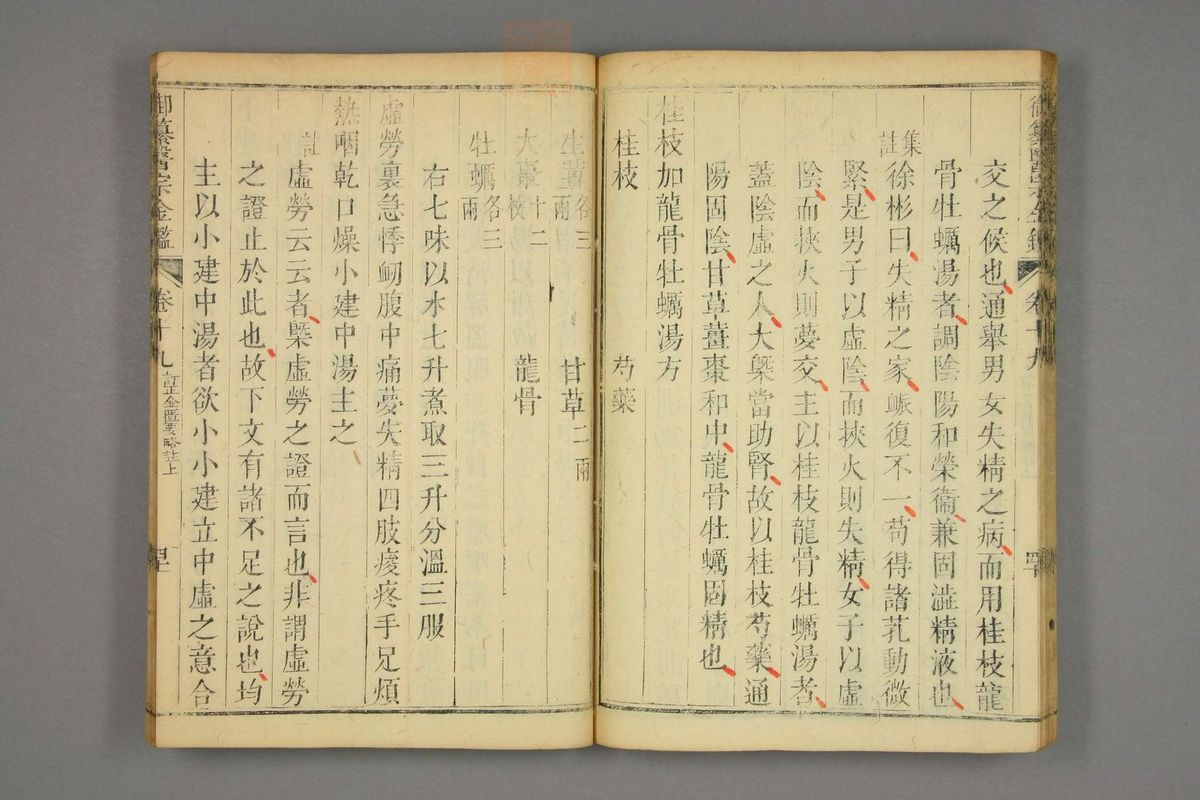 御纂醫宗金鑑 卷十九
交之候也通舉男女失精之病而用桂枝龍
骨牡蠣湯者調陰陽和榮衞兼固澁精液也
集註徐彬曰失精之家脈復不一苟得諸芤動微
緊是男子以虛陰而挾火則失精女子以虛
陰而挾火則夢交主以桂枝龍骨牡蠣湯者
蓋陰虛之人大槩當助腎故以桂枝芍藥通
陽固陰甘草薑棗和中龍骨牡蠣固精也
桂枝加龍骨牡蠣湯方
桂枝 芍藥
生薑各三兩 甘草二兩
大棗十二枚 龍骨
牡蠣各三兩
右七味以水七升煮取三升分溫三服
虛勞裏急悸衂腹中痛夢失精四肢痠疼手足煩
熱咽乾口燥小建中湯主之
註虛勞云云者槩虛勞之證而言也非謂虛勞
之證止於此也故下文有諸不足之說也均
主以小建中湯者欲小小建立中虛之意合
御纂醫宗金鑑 卷十九 訂正金匱要略註上